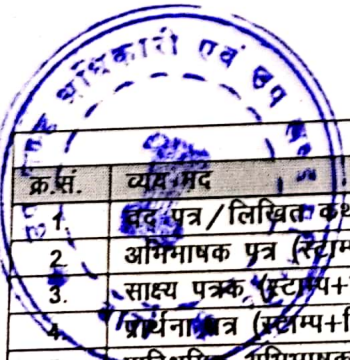 अधिकारी एवं उप
क्र.सं. व्यय मद
1. वाद पत्र/लिखित कथ
2 अभिभाषक पत्र (स्टाम
3. साक्ष्य पत्रक (स्टाम्प+
4. प्रार्थना पत्र (स्टाम्प+f